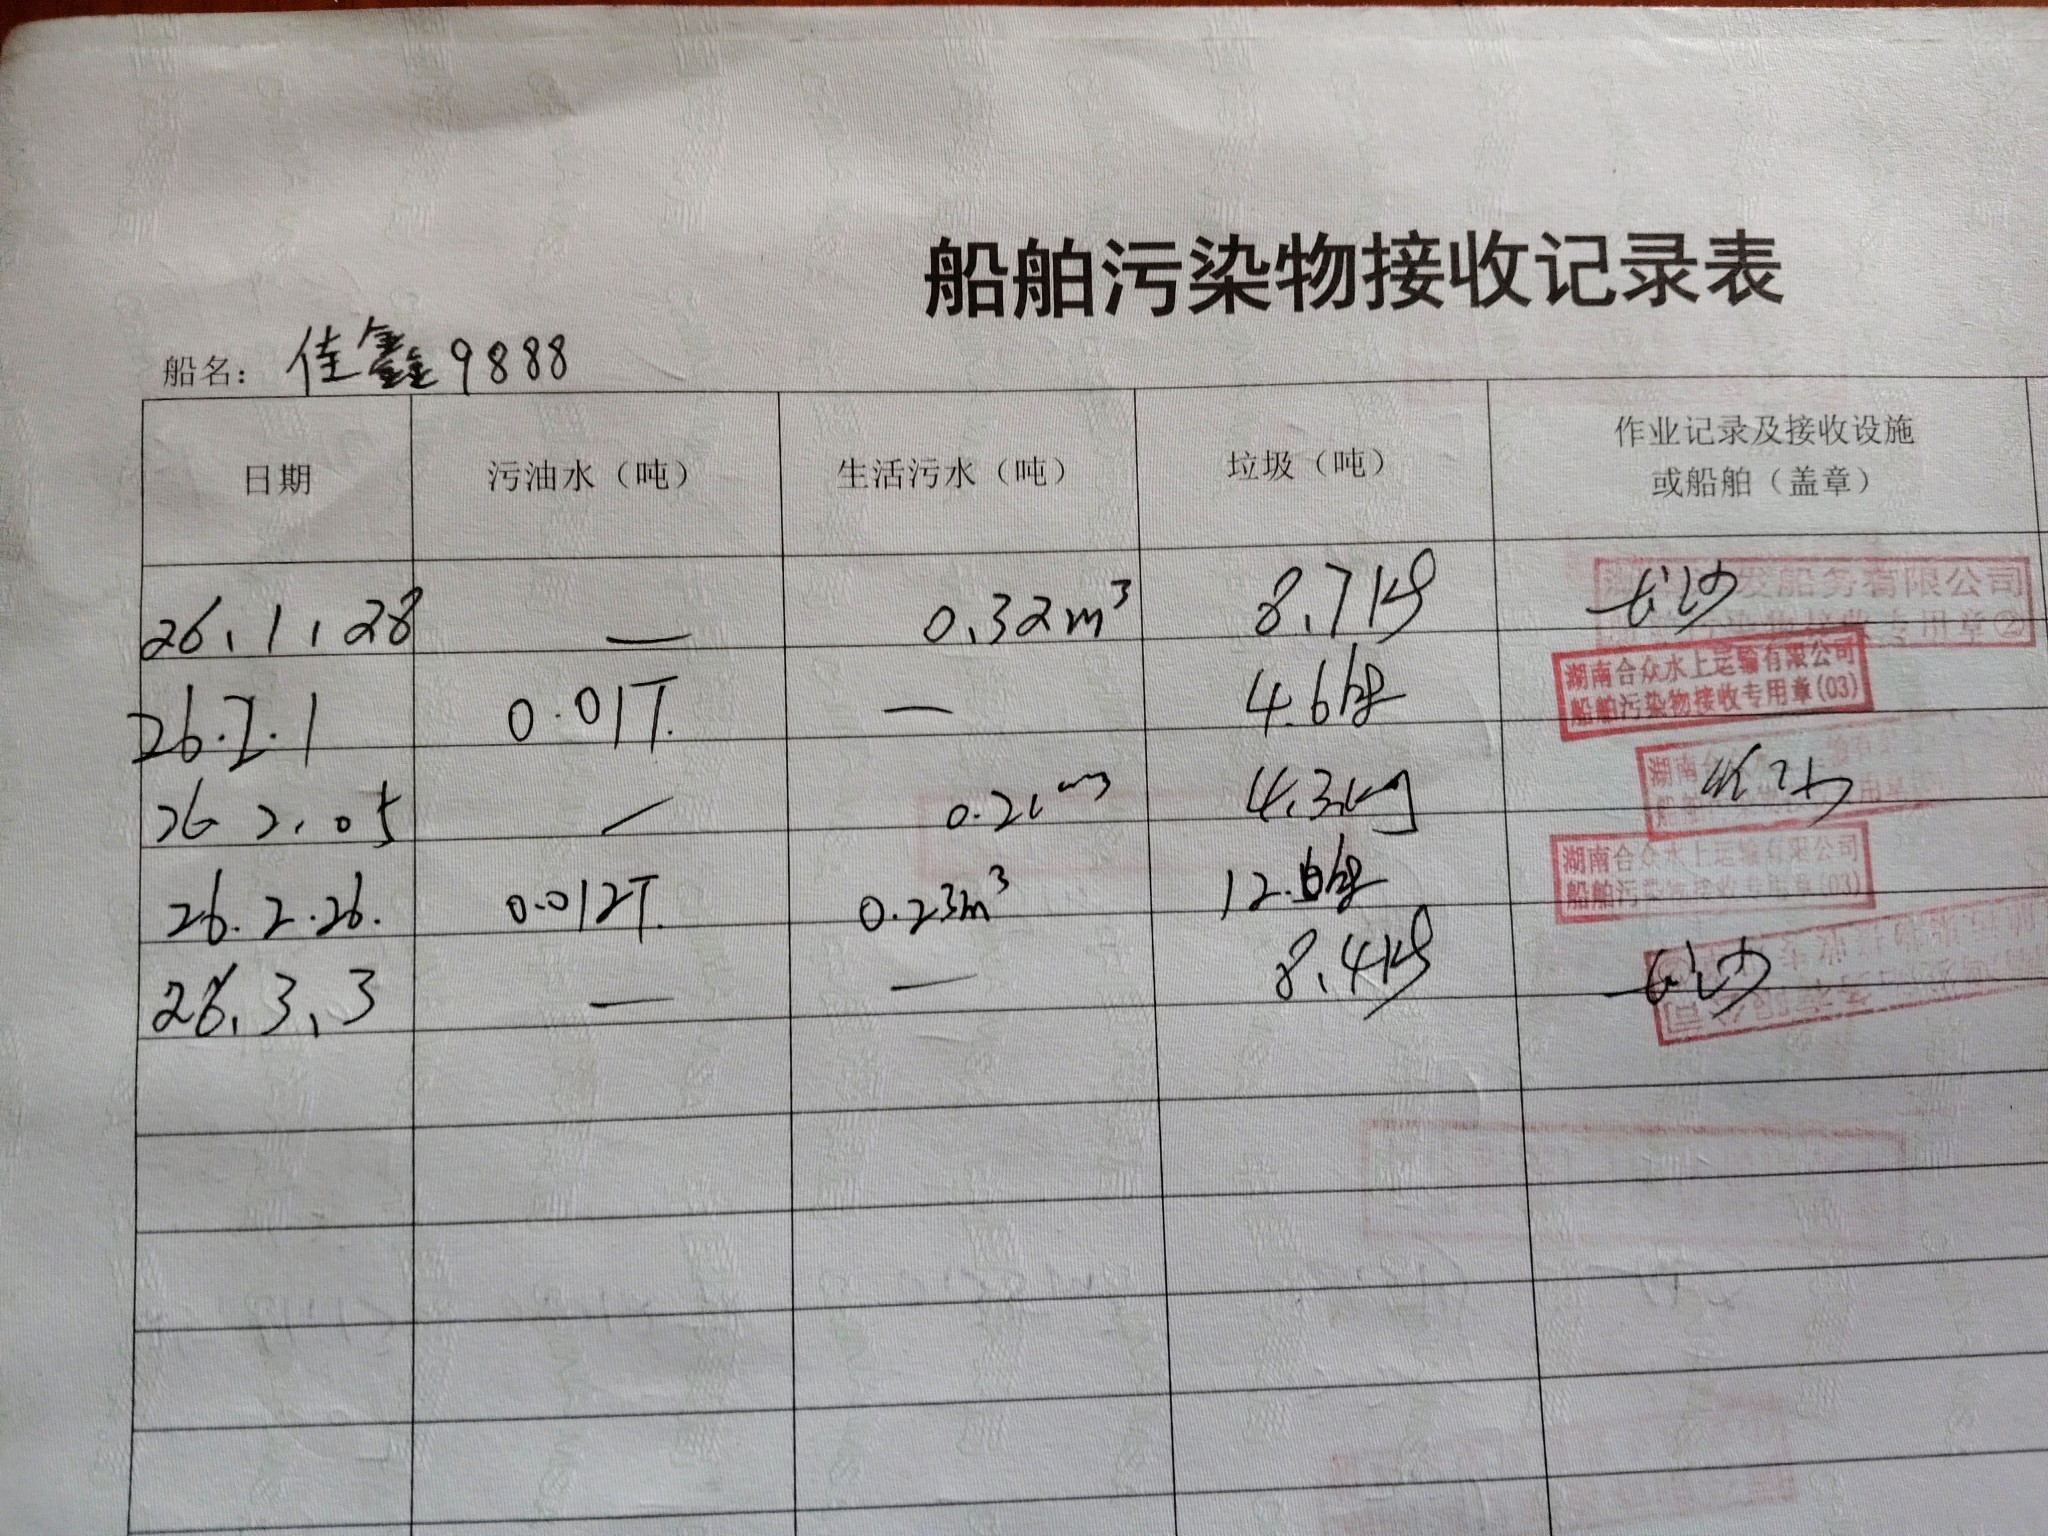 船舶污染物接收记录表
船名: 佳鑫9888
日期 污油水（吨） 生活污水（吨） 垃圾（吨） 作业记录及接收设施
或船舶（盖章）
26.1.28 — 0.32m³ 8.7kg 长沙 发船务有限公司 专用章②
26.2.1 0.01T. — 4.6kg 湖南合众水上运输有限公司
船舶污染物接收专用章(03)
26 2.05 — 0.2 m³ 4.3kg 湖南
26.2.26. 0.012T. 0.23m³ 12.6kg 湖南合众水上运输有限公司
船舶污染物接收专用章(03)
26.3.3 — — 8.4kg 长沙